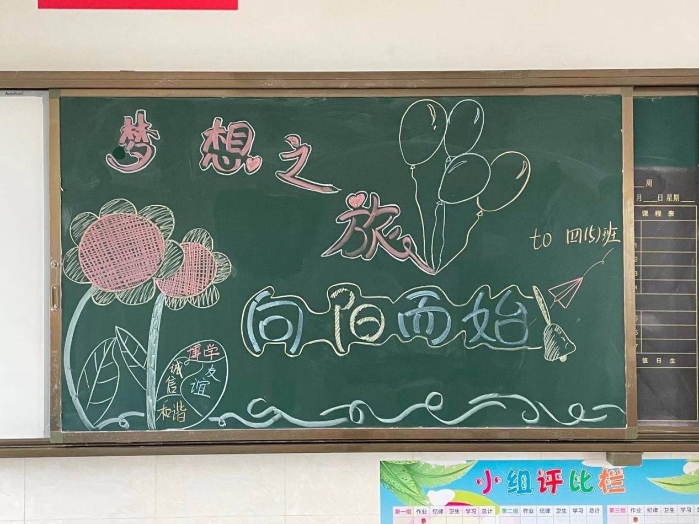 梦想之旅
to 四(5)班
向阳而始
博学
友谊
诚信
和谐
周
月 日 星期
课程表
值日生
小组评比栏
第一组 作业 纪律 卫生 学习 总计 第二组 作业 纪律 卫生 学习 总计 第三组 作业 纪律 卫生 学习